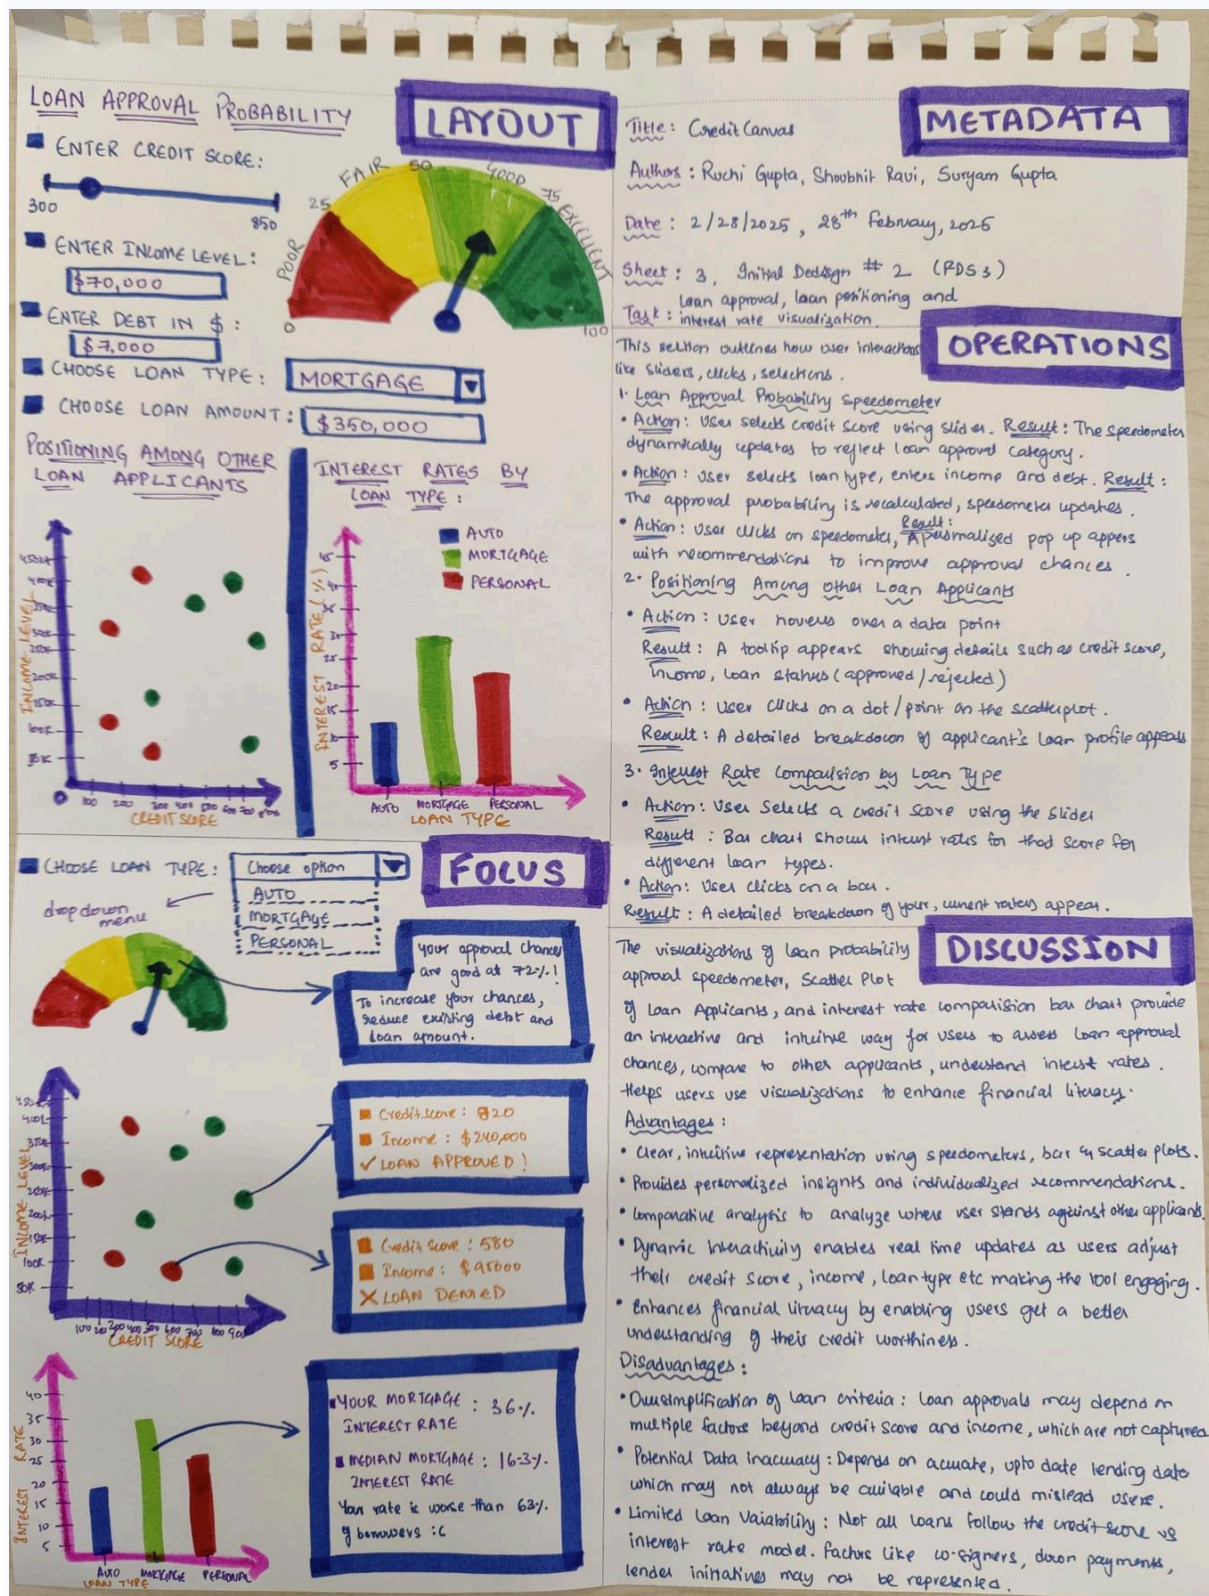 LOAN APPROVAL PROBABILITY
LAYOUT
ENTER CREDIT SCORE:
300
850
ENTER INCOME LEVEL:
$70,000
ENTER DEBT IN $ :
$7,000
CHOOSE LOAN TYPE:
MORTGAGE
CHOOSE LOAN AMOUNT:
$350,000
POOR
FAIR
GOOD
EXCELLENT
0
25
50
75
100
POSITIONING AMONG OTHER
LOAN APPLICANTS
INCOME LEVEL
400K
200K
150K
100K
0
100
200
300
400
500
600
700
CREDIT SCORE
INTEREST RATES BY
LOAN TYPE :
AUTO
MORTGAGE
PERSONAL
INTEREST RATE (%)
45
40
35
30
25
20
15
10
5
AUTO
MORTGAGE
PERSONAL
LOAN TYPE
FOCUS
CHOOSE LOAN TYPE:
Choose option
AUTO
MORTGAGE
PERSONAL
drop down
menu
your approval chances
are good at 72%!
To increase your chances,
reduce existing debt and
loan amount.
INCOME LEVEL
400K
350K
300K
250K
200K
150K
100K
50K
100
200
300
400
500
600
700
800
900
CREDIT SCORE
Credit score :
Income : $240,000
✓ LOAN APPROVED !
Credit score : 580
Income : $95000
X LOAN DENIED
INTEREST RATE
40
35
30
25
20
15
10
5
AUTO
MORTGAGE
PERSONAL
LOAN TYPE
YOUR MORTGAGE : 36%
INTEREST RATE
MEDIAN MORTGAGE : 16.3%
INTEREST RATE
Your rate is worse than 63%
of borrowers :(
METADATA
Title : Credit Canvas
Authors : Ruchi Gupta, Shoubhit Ravi, Suryam Gupta
Date : 2/28/2025, 28th February, 2025
Sheet : 3, Initial Dedisgn # 2 (FDS 3)
Task : Loan approval, loan positioning and
interest rate visualization.
OPERATIONS
This section outlines how user interactions
like sliders, clicks, selections.
1. Loan Approval Probability Speedometer
• Action : User selects credit score using slider. Result : The speedometer
dynamically updates to reflect loan approval category.
• Action : User selects loan type, enters income and debt. Result :
The approval probability is recalculated, speedometer updates.
• Action : User clicks on speedometer, Result : A personalized pop up appers
with recommendations to improve approval chances.
2. Positioning Among Other Loan Applicants
• Action : User hovers over a data point
Result : A tooltip appears showing details such as credit score,
income, loan status (approved / rejected)
• Action : User clicks on a dot / point on the scatterplot.
Result : A detailed breakdown of applicant's loan profile appears
3. Interest Rate Comparision by Loan Type
• Action : User selects a credit score using the slider
Result : Bar chart shows interest rates for that score for
different loan types.
• Action : User clicks on a bar.
Result : A detailed breakdown of your, current rates appear.
DISCUSSION
The visualizations of loan probability
approval speedometer, Scatter Plot
of Loan Applicants, and interest rate comparision bar chart provide
an interactive and intuitive way for users to assess loan approval
chances, compare to other applicants, understand interest rates.
Helps users use visualizations to enhance financial literacy.
Advantages :
• Clear, intuitive representation using speedometers, bar & scatter plots.
• Provides personalized insights and individualized recommendations.
• Comparative analysis to analyze where user stands against other applicants.
• Dynamic interactivity enables real time updates as users adjust
their credit score, income, loan type etc making the tool engaging.
• Enhances financial literacy by enabling users get a better
understanding of their credit worthiness.
Disadvantages :
• Oversimplification of loan criteria : Loan approvals may depend on
multiple factors beyond credit score and income, which are not captured
• Potential Data inaccuracy : Depends on accurate, upto date lending data
which may not always be available and could mislead users.
• Limited Loan Variability : Not all loans follow the credit score vs
interest rate model. Factors like co-signers, down payments,
lender initiatives may not be represented.